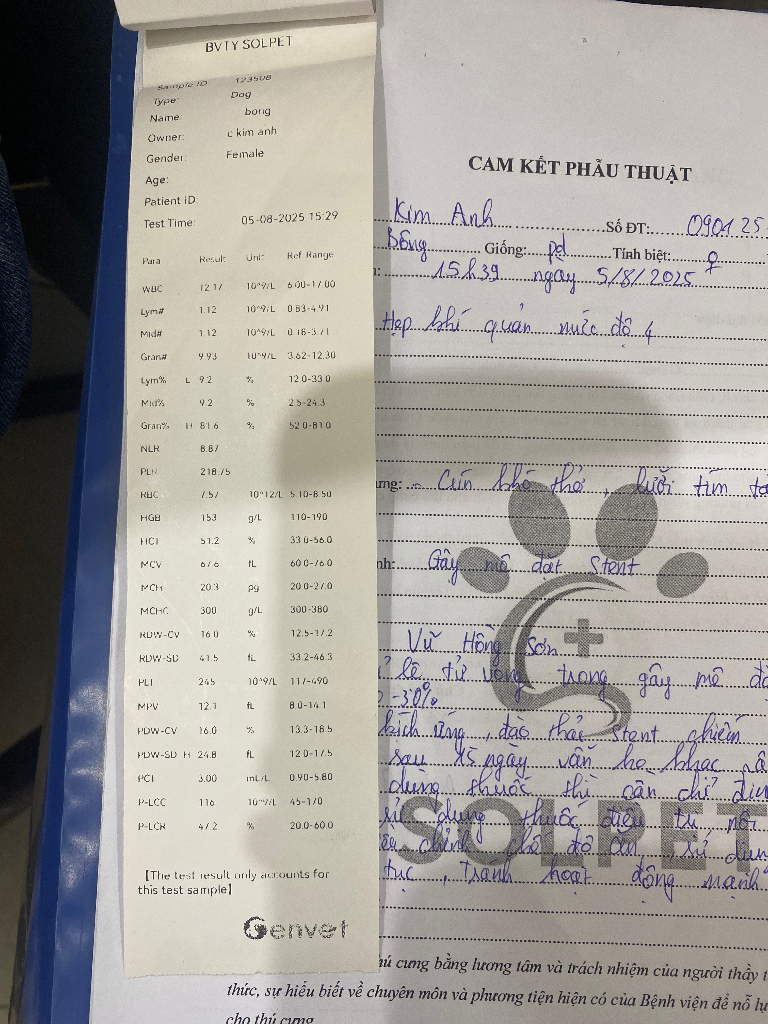 BVTY SOLPET
Sample ID 123508
Type: Dog
Name bong
Owner: c kim anh
Gender: Female
Age:
Patient ID:
Test Time: 05-08-2025 15:29
Para Result Unit Ref Range
WBC 12.17 10^9/L 6.00-17.00
Lym# 1.12 10^9/L 0.83-4.91
Mid# 1.12 10^9/L 0.18-3.71
Gran# 9.93 10^9/L 3.62-12.30
Lym% L 9.2 % 12.0-33.0
Mid% 9.2 % 2.5-24.3
Gran% H 81.6 % 52.0-81.0
NLR 8.87
PLR 218.75
RBC 7.57 10^12/L 5.10-8.50
HGB 153 g/L 110-190
HCT 51.2 % 33.0-56.0
MCV 67.6 fL 60.0-76.0
MCH 20.3 pg 20.0-27.0
MCHC 300 g/L 300-380
RDW-CV 16.0 % 12.5-17.2
RDW-SD 41.5 fL 33.2-46.3
PLT 245 10^9/L 117-490
MPV 12.1 fL 8.0-14.1
PDW-CV 16.0 % 13.3-18.5
PDW-SD H 24.8 fL 12.0-17.5
PCT 3.00 mL/L 0.90-5.80
P-LCC 116 10^9/L 45-170
P-LCR 47.2 % 20.0-60.0
【The test result only accounts for
this test sample】
Genvet
CAM KẾT PHẪU THUẬT
Kim Anh Số ĐT: 0901 25
Bông Giống: pd Tính biệt: ♀
15h39 ngày 5/8/2025
Hẹp khí quản mức độ 4
ưng: Cún khó thở, lưỡi tím
nh: Gây mê đặt Stent
Vũ Hồng Sơn
lệ tử vong trong gây mê
-30%
kích ứng, đào thải Stent chiếm
sau 15 ngày vẫn ho khạc
dùng thuốc thì cần chỉ
sử dụng thuốc điều trị nội
chỉnh chế độ ăn, sử
tục, tránh hoạt động mạnh
SOLPET
hú cưng bằng lương tâm và trách nhiệm của người thầy
thức, sự hiểu biết về chuyên môn và phương tiện hiện có của Bệnh viện để nỗ
cho thú cưng